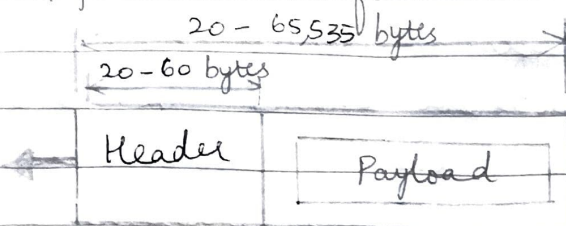 20 - 65,535 bytes
20-60 bytes
Header
Payload